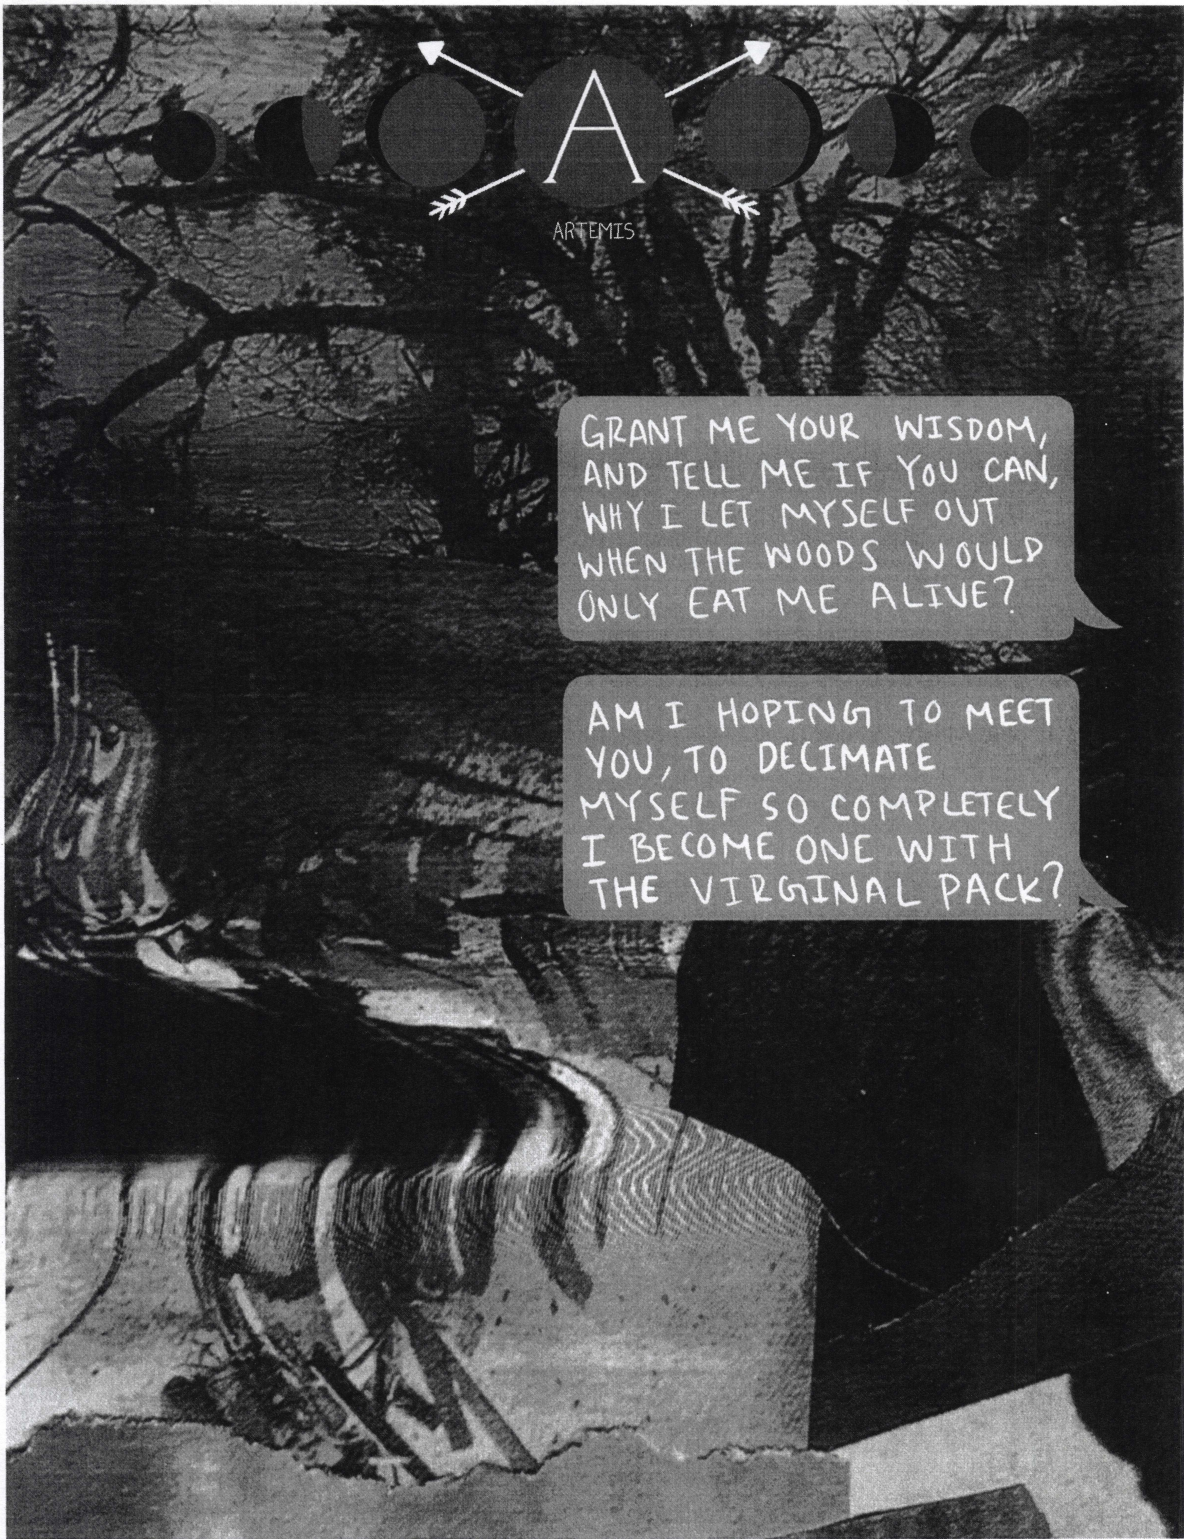 A
ARTEMIS
GRANT ME YOUR WISDOM,
AND TELL ME IF YOU CAN,
WHY I LET MYSELF OUT
WHEN THE WOODS WOULD
ONLY EAT ME ALIVE?
AM I HOPING TO MEET
YOU, TO DECIMATE
MYSELF SO COMPLETELY
I BECOME ONE WITH
THE VIRGINAL PACK?